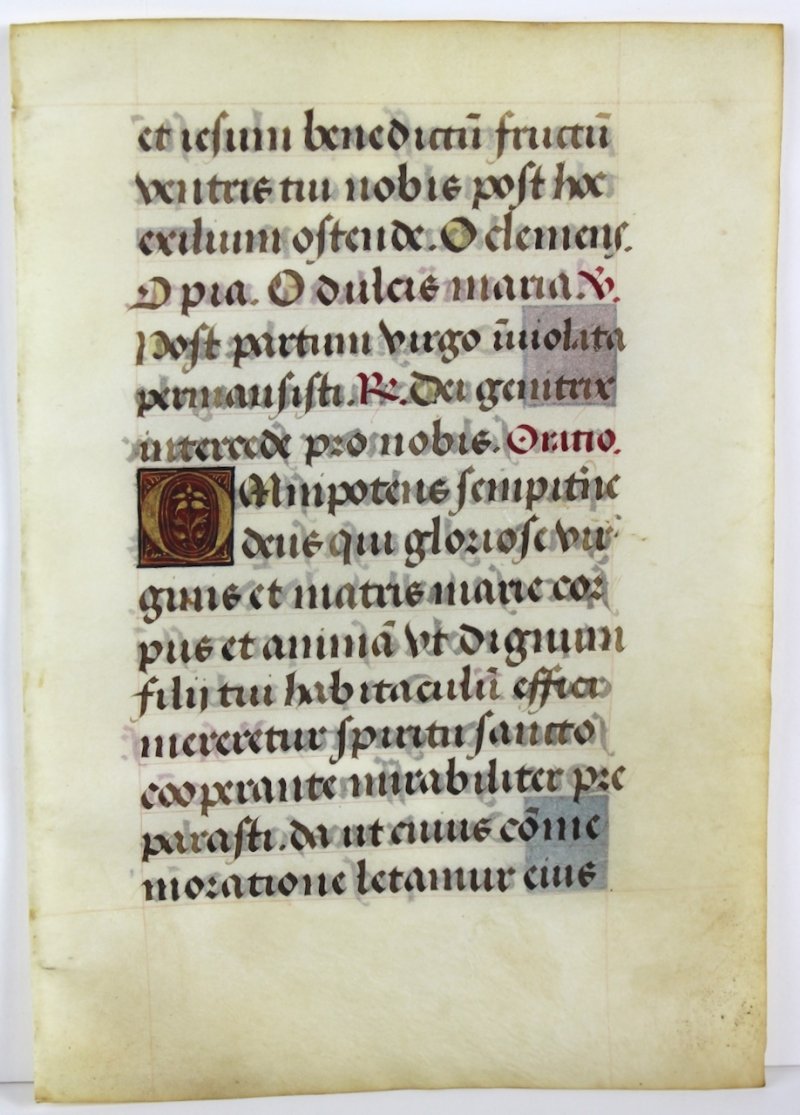 et iesum benedictū fructū
ventris tui nobis post hoc
exilium ostende. O clemens.
O pia. O dulcis maria. V.
Post partum virgo īuiolata
permansisti. Re. Dei genitrix
intercede pro nobis. Oratio.
OMnipotens sempitn̄e
deus qui gloriose vir
ginis et matris marie cor
pus et animā vt dignum
filij tui habitaculū effici
mereretur spiritu sancto
cooperante mirabiliter pre
parasti. da ut cuius cōme
moratione letamur eius